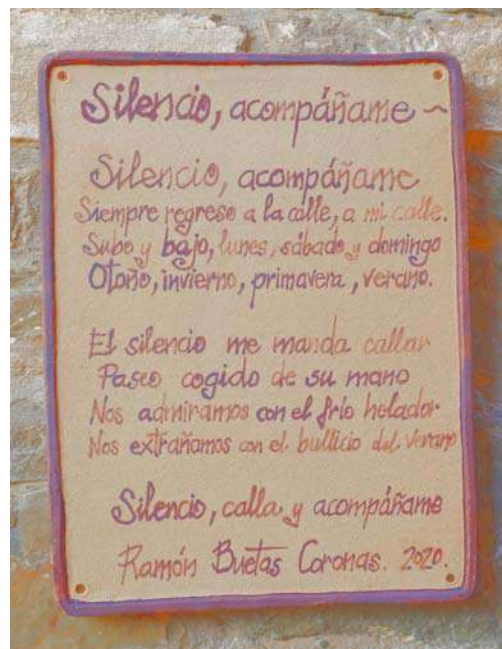 Silencio, acompáñame ~
Silencio, acompáñame
Siempre regreso a la calle, a mi calle.
Subo y bajo, lunes, sábado y domingo
Otoño, invierno, primavera, verano.
El silencio me manda callar
Paseo cogido de su mano
Nos admiramos con el frío helador
Nos extrañamos con el bullicio del verano
Silencio, calla y acompáñame
Ramón Buetas Coronas. 2020.